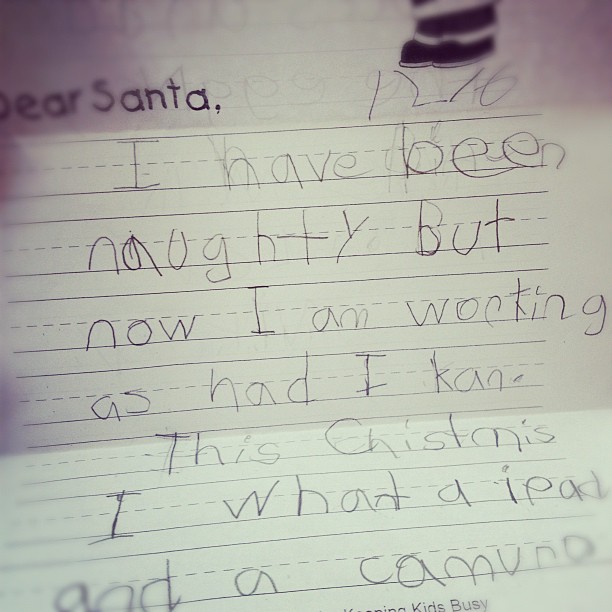 Dear Santa,
I have been
naughty But
now I am working
as had I kan.
This Chistmis
I whant a ipad
and a
Keeping Kids Busy